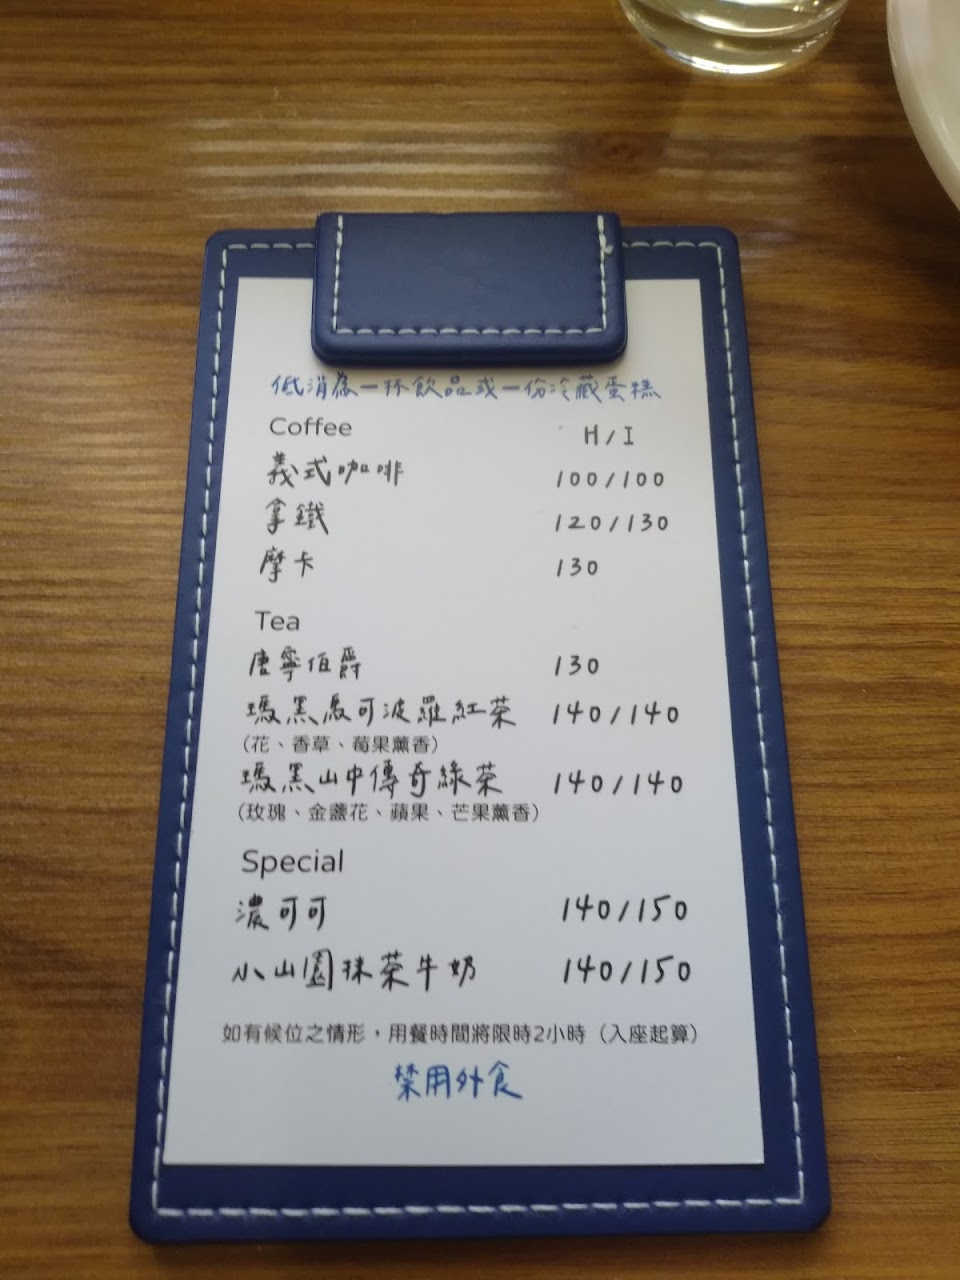 低消為一杯飲品或一份冷藏蛋糕
Coffee H/I
義式咖啡 100/100
拿鐵 120/130
摩卡 130
Tea
唐寧伯爵 130
瑪黑馬可波羅紅茶 140/140
(花、香草、莓果薰香)
瑪黑山中傳奇綠茶 140/140
(玫瑰、金盞花、蘋果、芒果薰香)
Special
濃可可 140/150
小山園抹茶牛奶 140/150
如有候位之情形，用餐時間將限時2小時（入座起算）
禁用外食